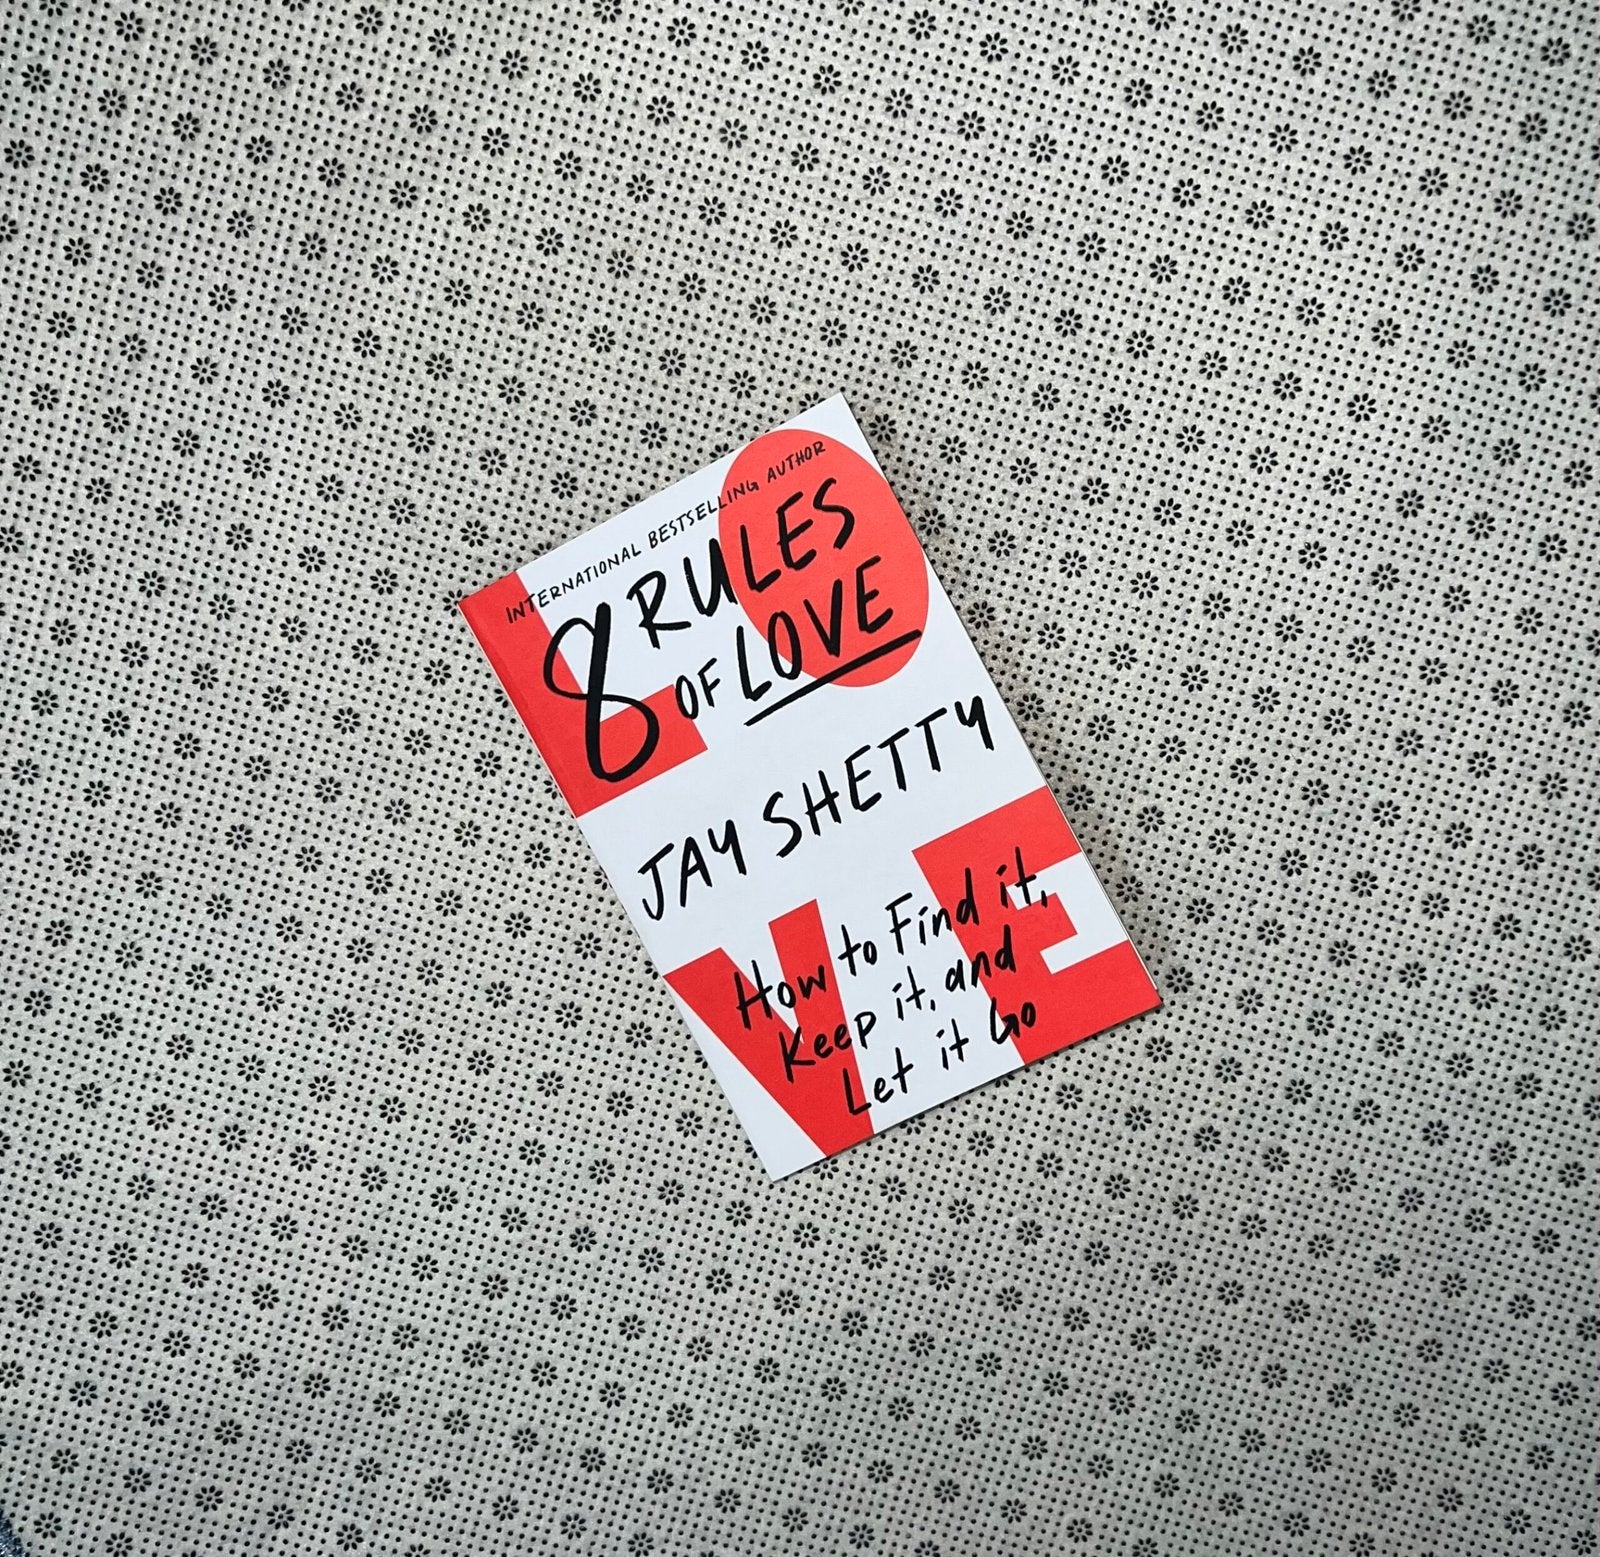 INTERNATIONAL BESTSELLING AUTHOR
8 RULES
OF LOVE
JAY SHETTY
How to Find it,
Keep it, and
Let it Go
LO
VE